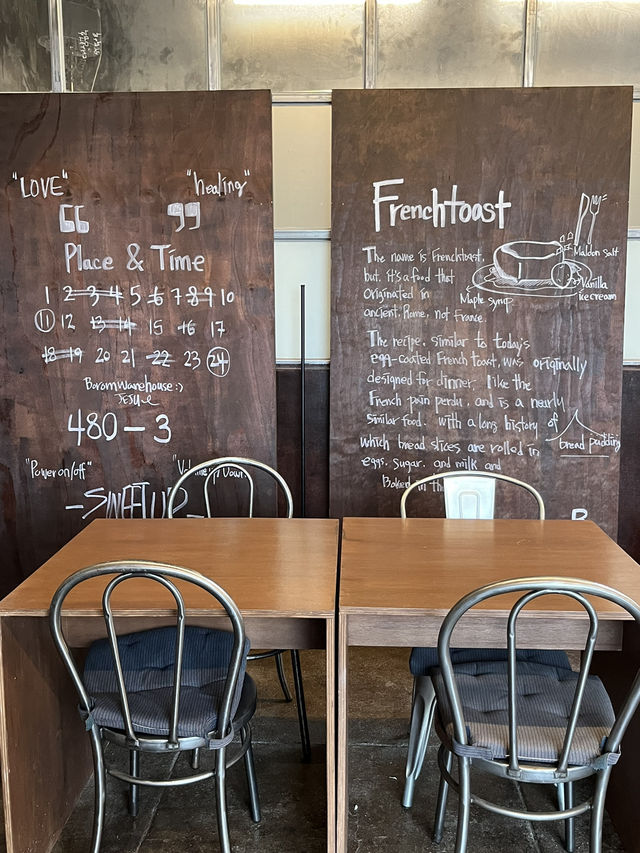 "LOVE" "healing"
66 99
Place & Time
1 2 3 4 5 6 7 8 9 10
11 12 13 14 15 16 17
18 19 20 21 22 23 24
Boromwarehouse :)
480-3
"Power on/off" "Volume Down"
- SWEET UP -
Frenchtoast
The name is Frenchtoast,
but, it's a food that
originated in
ancient, Rome, not France.
Maldon Salt
Vanilla
icecream
Maple syrup
The recipe, similar to today's
egg-coated French toast, was originally
designed for dinner, like the
French pain perdu, and is a nearly
similar food. with a long history of
bread pudding
which bread slices are rolled in
eggs, sugar, and milk and
Baked in the